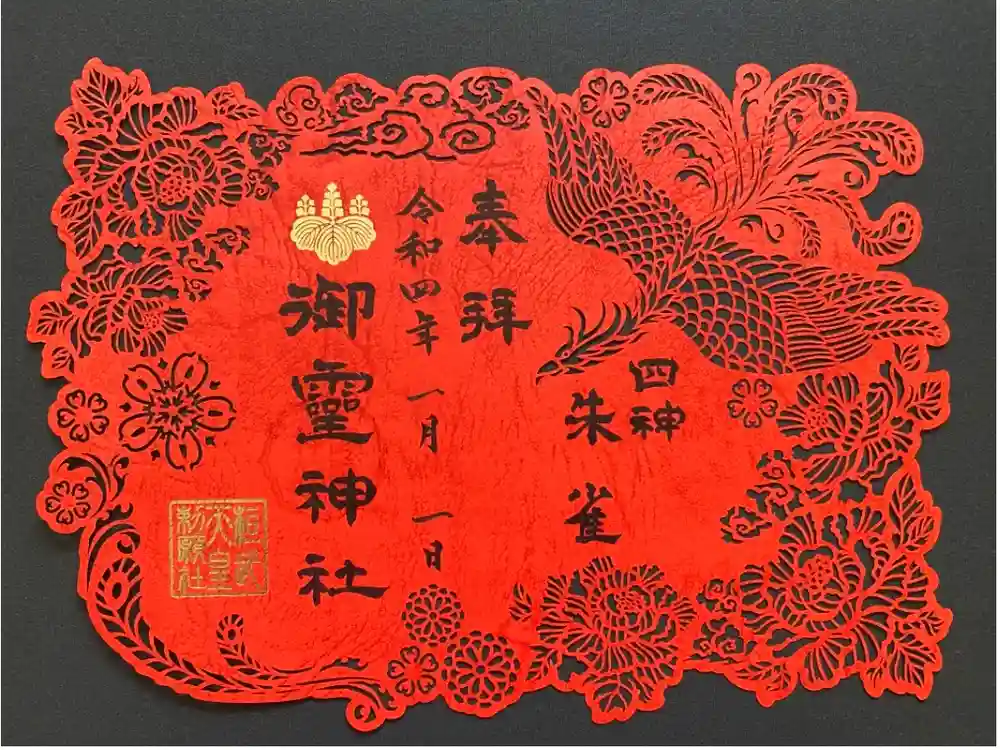 四神
朱雀
奉拝
令和四年 一月 一日
御靈神社
桓武
天皇
勅願社